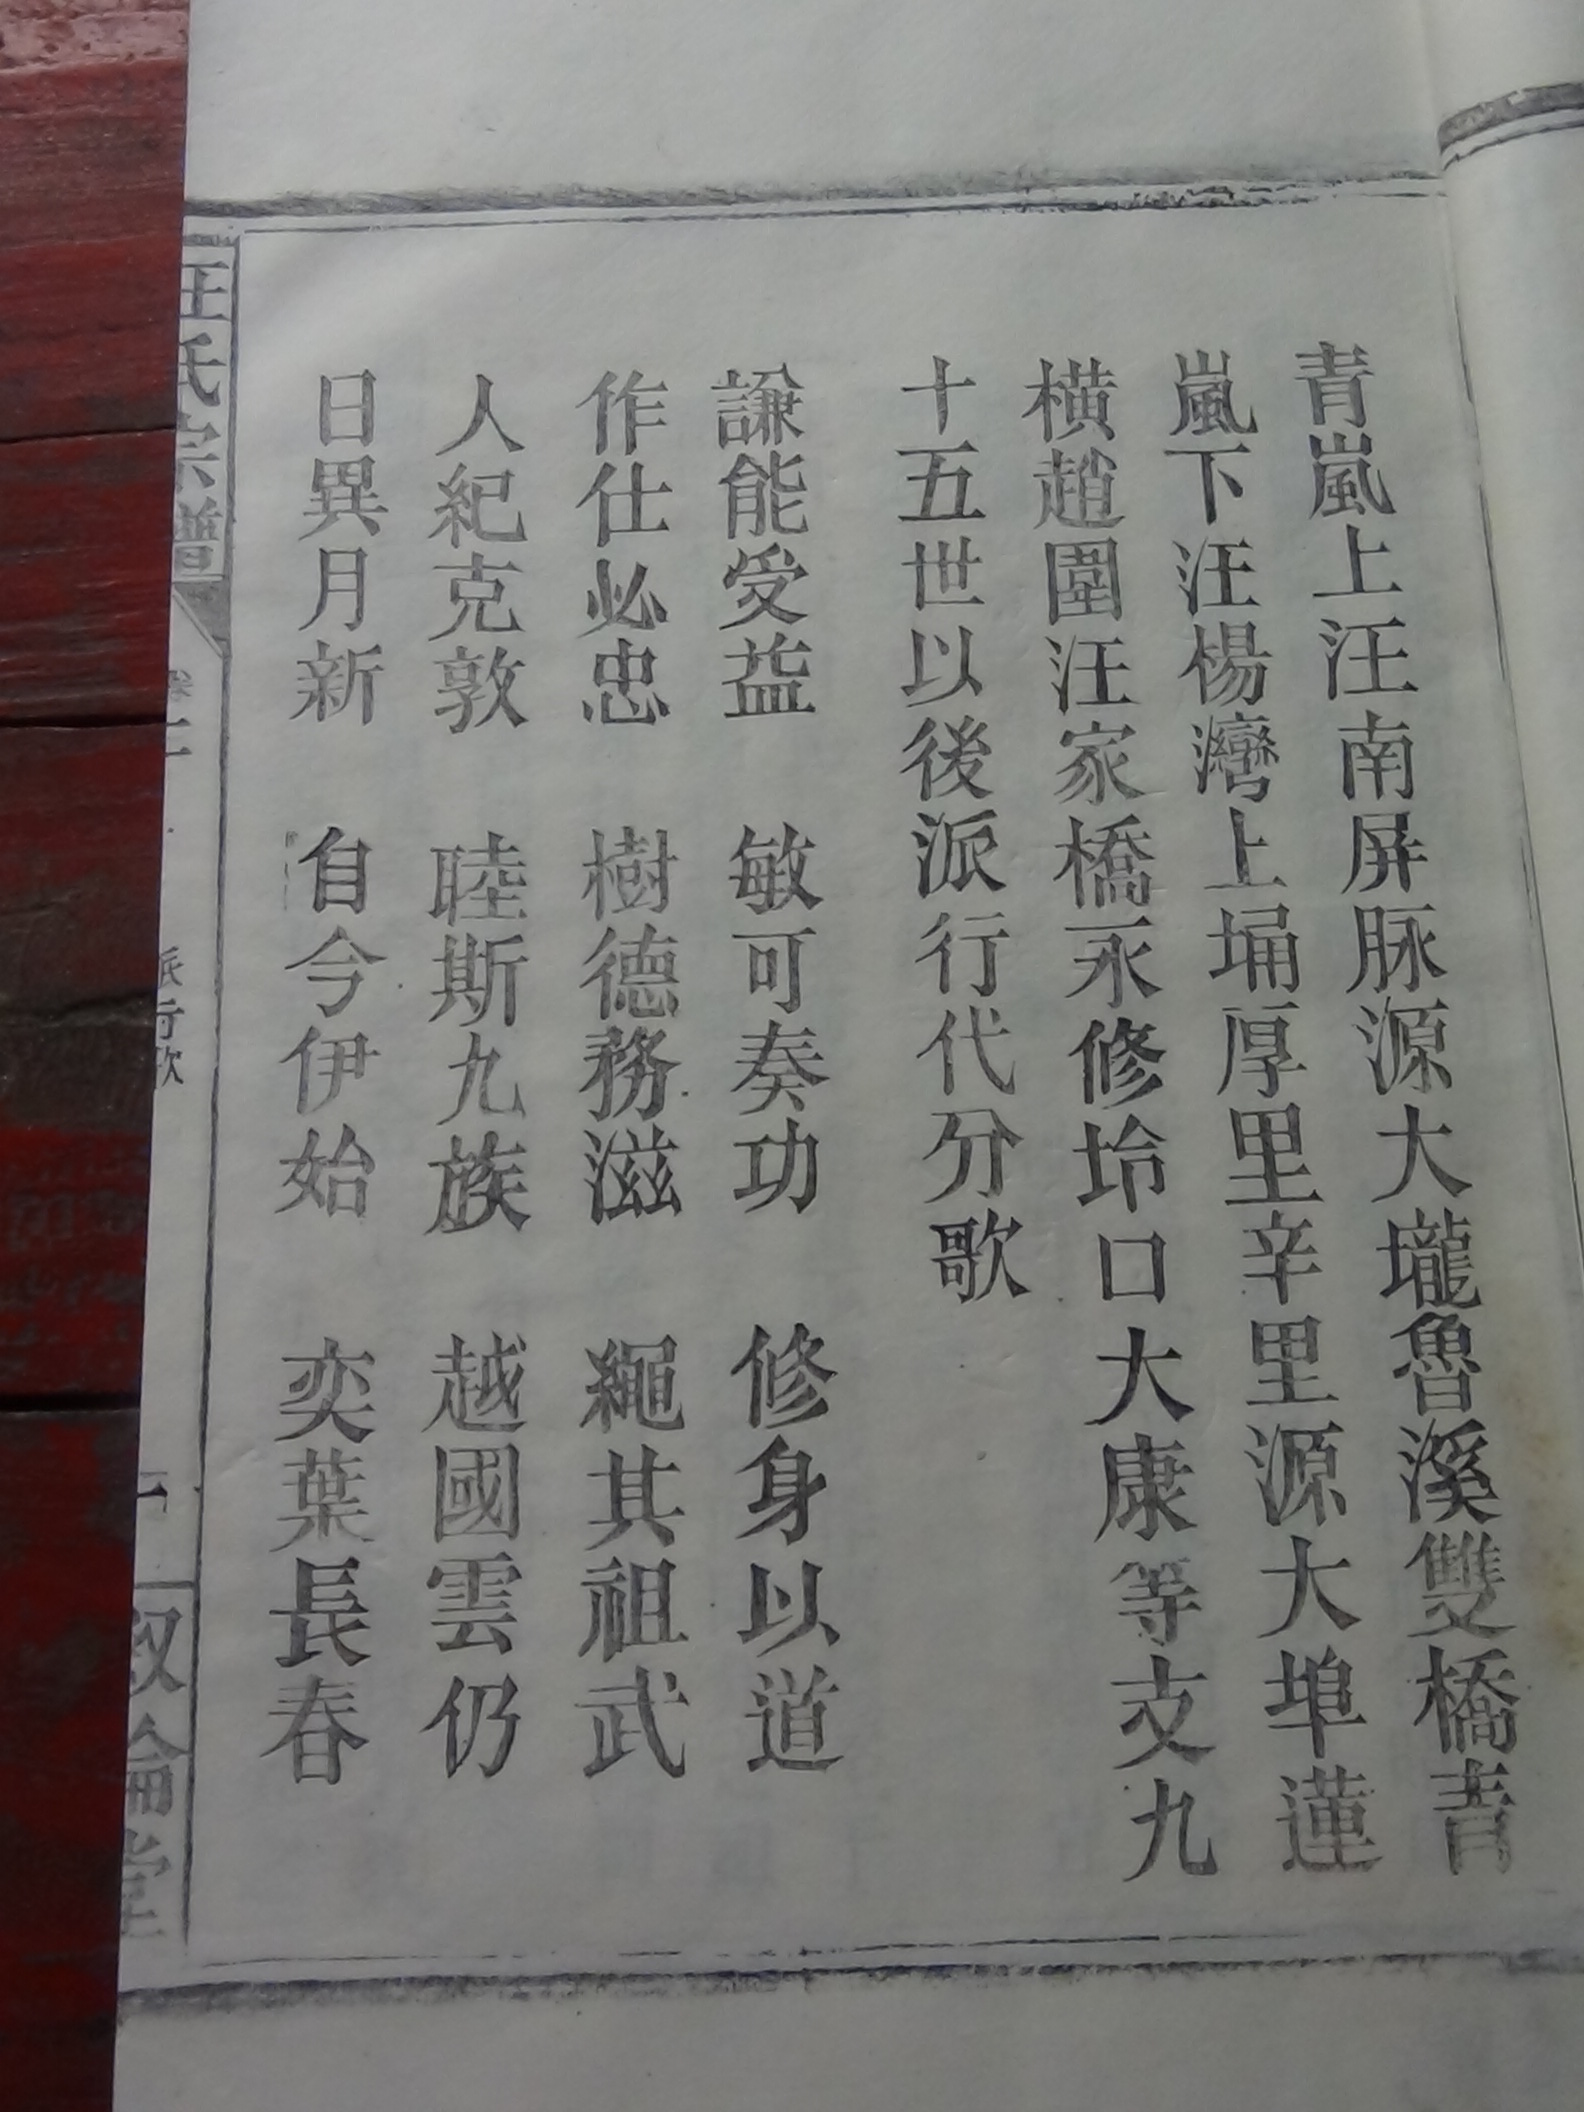 青嵐上汪南屏脉源大壠魯溪雙橋青
嵐下汪楊灣上埇厚里辛里源大埠蓮
橫趙圍汪家橋永修坽口大康等支九
十五世以後派行代分歌
謙能受益 敏可奏功 修身以道
作仕必忠 樹德務滋 繩其祖武
人紀克敦 睦斯九族 越國雲仍
日異月新 自今伊始 奕葉長春
汪氏宗譜
派行歌
敘倫堂